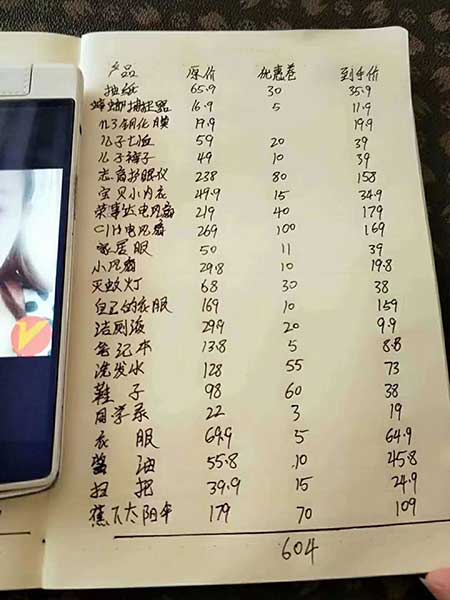 产品 原价 优惠卷 到手价
抽纸 65.9 30 35.9
蟑螂捕捉器 16.9 5 11.9
钢化膜 19.9 19.9
儿子七恤 59 20 39
儿子裤子 49 10 39
志高护眼仪 238 80 158
宝贝小内衣 49.9 15 34.9
荣事达电风扇 219 40 179
电风扇 269 100 169
家居服 50 11 39
小风扇 29.8 10 19.8
灭蚊灯 68 30 38
自己的衣服 169 10 159
洁厕液 29.9 20 9.9
笔记本 13.8 5 8.8
洗发水 128 55 73
鞋子 98 60 38
22 3 19
衣服 69.9 5 64.9
55.8 10 45.8
扫把 39.9 15 24.9
蕉下太阳伞 179 70 109
604